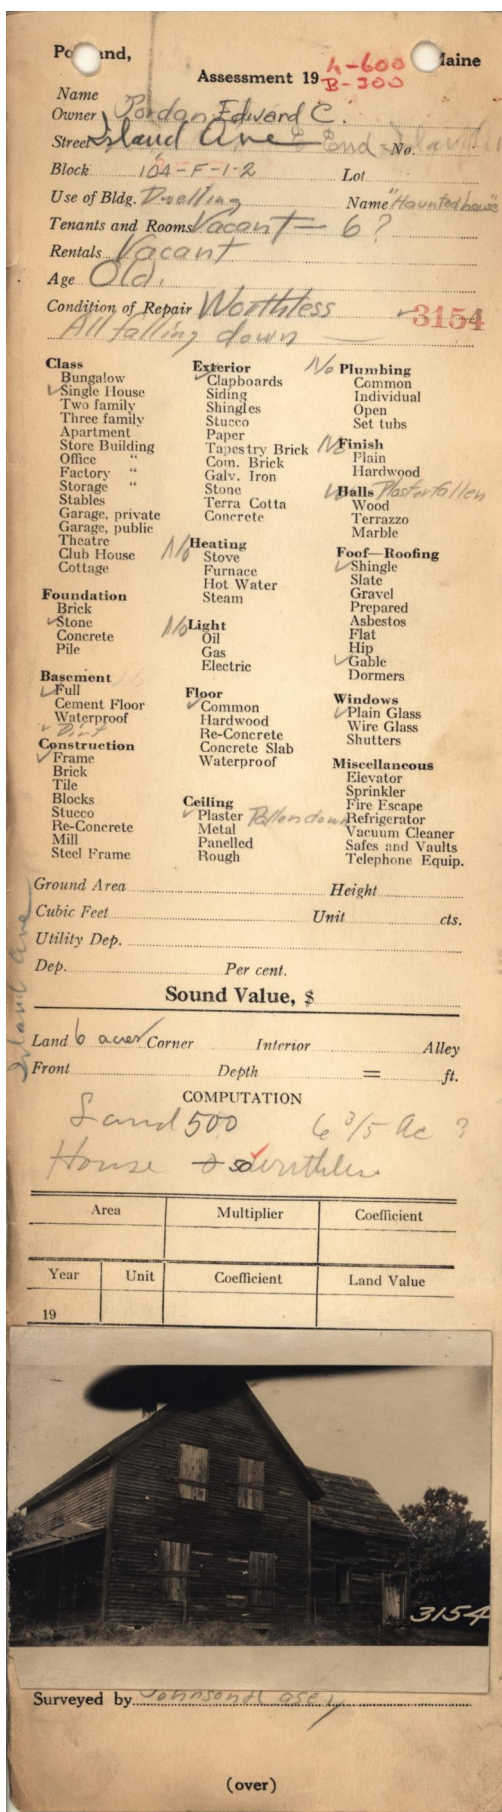 Portland, Maine
Assessment 19
L-600
B-300
Name
Owner Jordan, Edward C.
Street Island Ave E End Island No.
Block 104-F-1-2 Lot
Use of Bldg. Dwelling Name "Haunted house"
Tenants and Rooms Vacant — 6?
Rentals Vacant
Age Old.
Condition of Repair Worthless 3154
All falling down
Class
Bungalow
✓Single House
Two family
Three family
Apartment
Store Building
Office "
Factory "
Storage "
Stables
Garage, private
Garage, public
Theatre
Club House
Cottage
Foundation
Brick
✓Stone
Concrete
Pile
Basement
✓Full
Cement Floor
Waterproof
✓Dirt
Construction
✓Frame
Brick
Tile
Blocks
Stucco
Re-Concrete
Mill
Steel Frame
Exterior
✓Clapboards
Siding
Shingles
Stucco
Paper
Tapestry Brick
Com. Brick
Galv. Iron
Stone
Terra Cotta
Concrete
No Heating
Stove
Furnace
Hot Water
Steam
No Light
Oil
Gas
Electric
Floor
✓Common
Hardwood
Re-Concrete
Concrete Slab
Waterproof
Ceiling
✓Plaster Fallen down
Metal
Panelled
Rough
No Plumbing
Common
Individual
Open
Set tubs
No Finish
Plain
Hardwood
Halls Plaster fallen
Wood
Terrazzo
Marble
Foof—Roofing
✓Shingle
Slate
Gravel
Prepared
Asbestos
Flat
Hip
✓Gable
Dormers
Windows
✓Plain Glass
Wire Glass
Shutters
Miscellaneous
Elevator
Sprinkler
Fire Escape
Refrigerator
Vacuum Cleaner
Safes and Vaults
Telephone Equip.
Ground Area Height
Cubic Feet Unit cts.
Utility Dep.
Dep. Per cent.
Sound Value, $
Island Ave
Land 6 acres Corner Interior Alley
Front Depth = ft.
COMPUTATION
Land 500 6 3/5 Ac ?
House 50 worthless
Area Multiplier Coefficient
Year Unit Coefficient Land Value
19
3154
Surveyed by Johnson & Casey
(over)